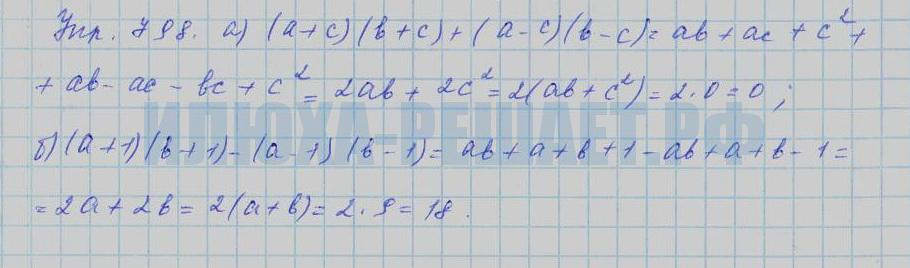 Упр. 798. а) (a+c)(b+c)+(a-c)(b-c)= ab + ac + c² +
+ ab - ac - bc + c² = 2ab + 2c² = 2(ab+c²) = 2·0 = 0;
ИЛЮХА-РЕШАЕТ.РФ
б) (a+1)(b+1)-(a-1)(b-1)= ab+a+b+1-ab+a+b-1=
= 2a+2b = 2(a+b)= 2·9 = 18.